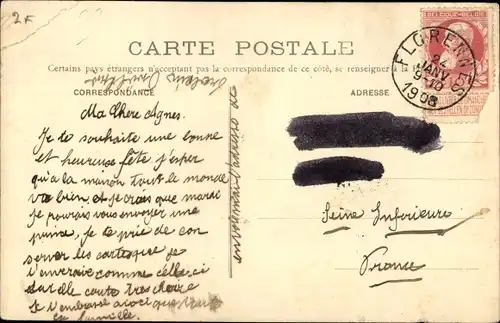 2F
CARTE POSTALE
Certains pays étrangers n'acceptant pas la correspondance de ce côté, se renseigner à la
CORRESPONDANCE
ADRESSE
BELGIQUE-BELGIE
FLORENNES
24
JANV
9-10
1908
Ma Chere Agnes.
Je te souhaite une bonne
et heureuse fête j'esper
qu'à la maison tout le monde
va bien et je crois que mardi
je pourais vous envoyer une
prime, je te prie de con
server les cartes que je
t'enverais comme celle-ci
car elle coute tres chere
Je t'embrasse avec toute
la famille.
Seine Inférieure
France